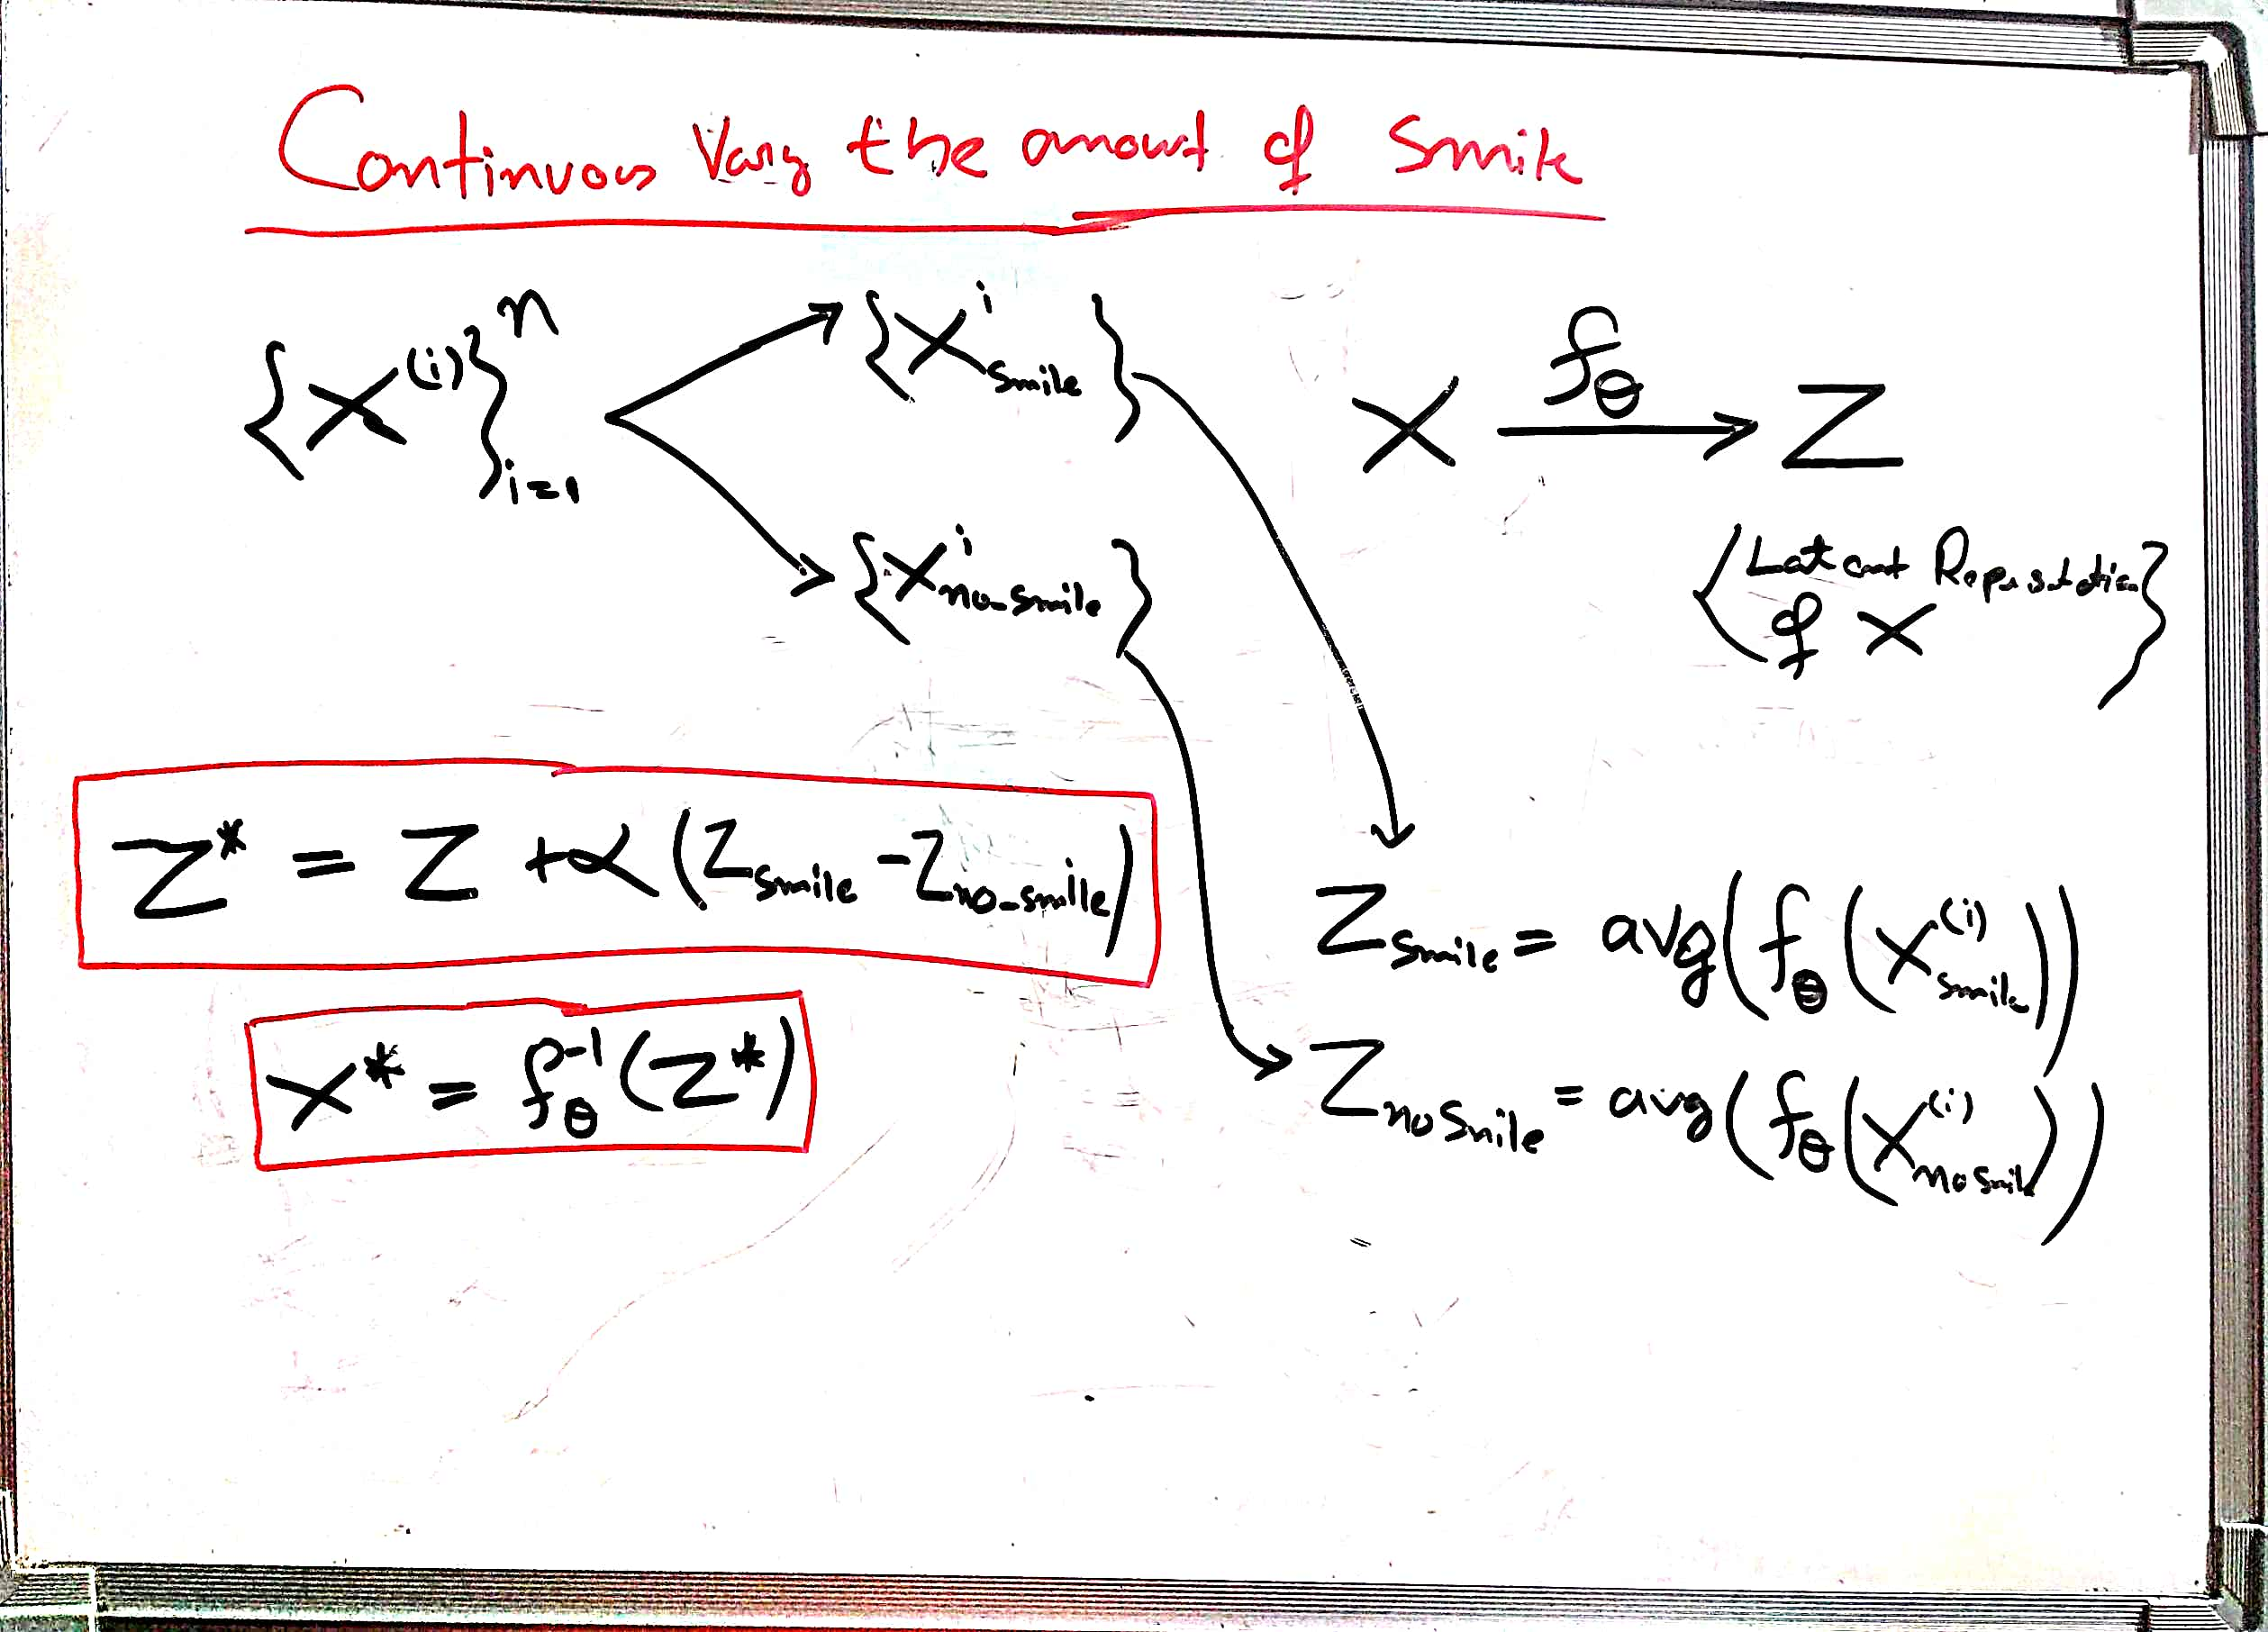 Continuous Vary the amount of Smile
{X^(i)}^n_{i=1}
{X^i_smile}
{X^i_no-smile}
X —f_θ→ Z
{Latent Represtation
of X}
Z* = Z + α (Z_smile - Z_no-smile)
X* = f_θ^-1 (Z*)
Z_smile = avg(f_θ(X^(i)_smile))
Z_no smile = avg(f_θ(X^(i)_no smile))